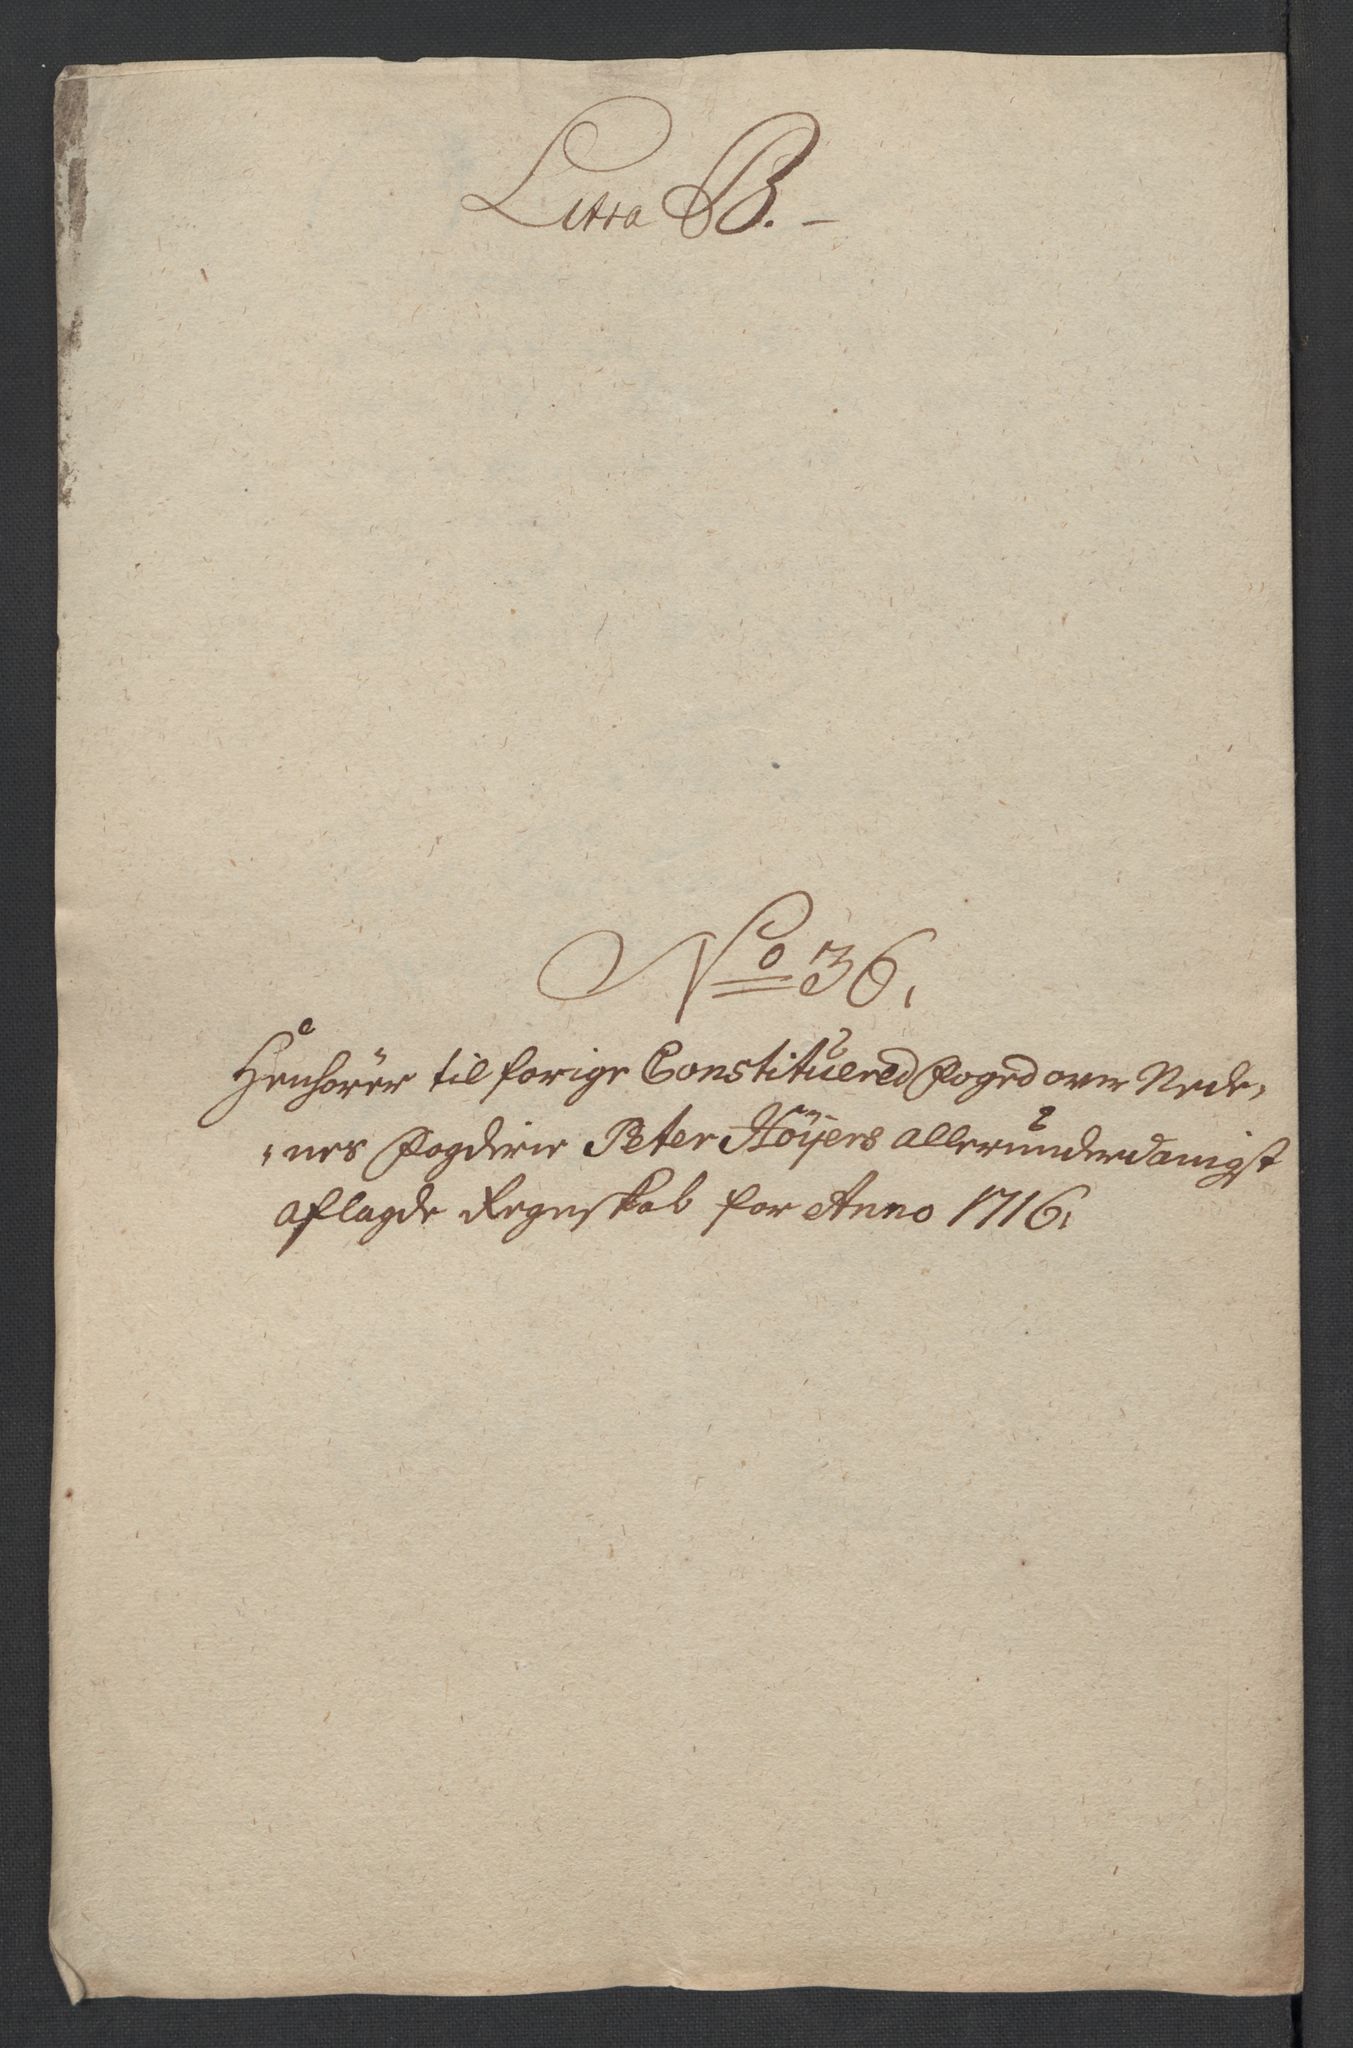 Litra B. –
No 36,
Henhörer til forige Constituered Foged over Nede,
,nes Fogderie Peter Höÿers allerunderdanigst
aflagde Regnskab for Anno 1716,